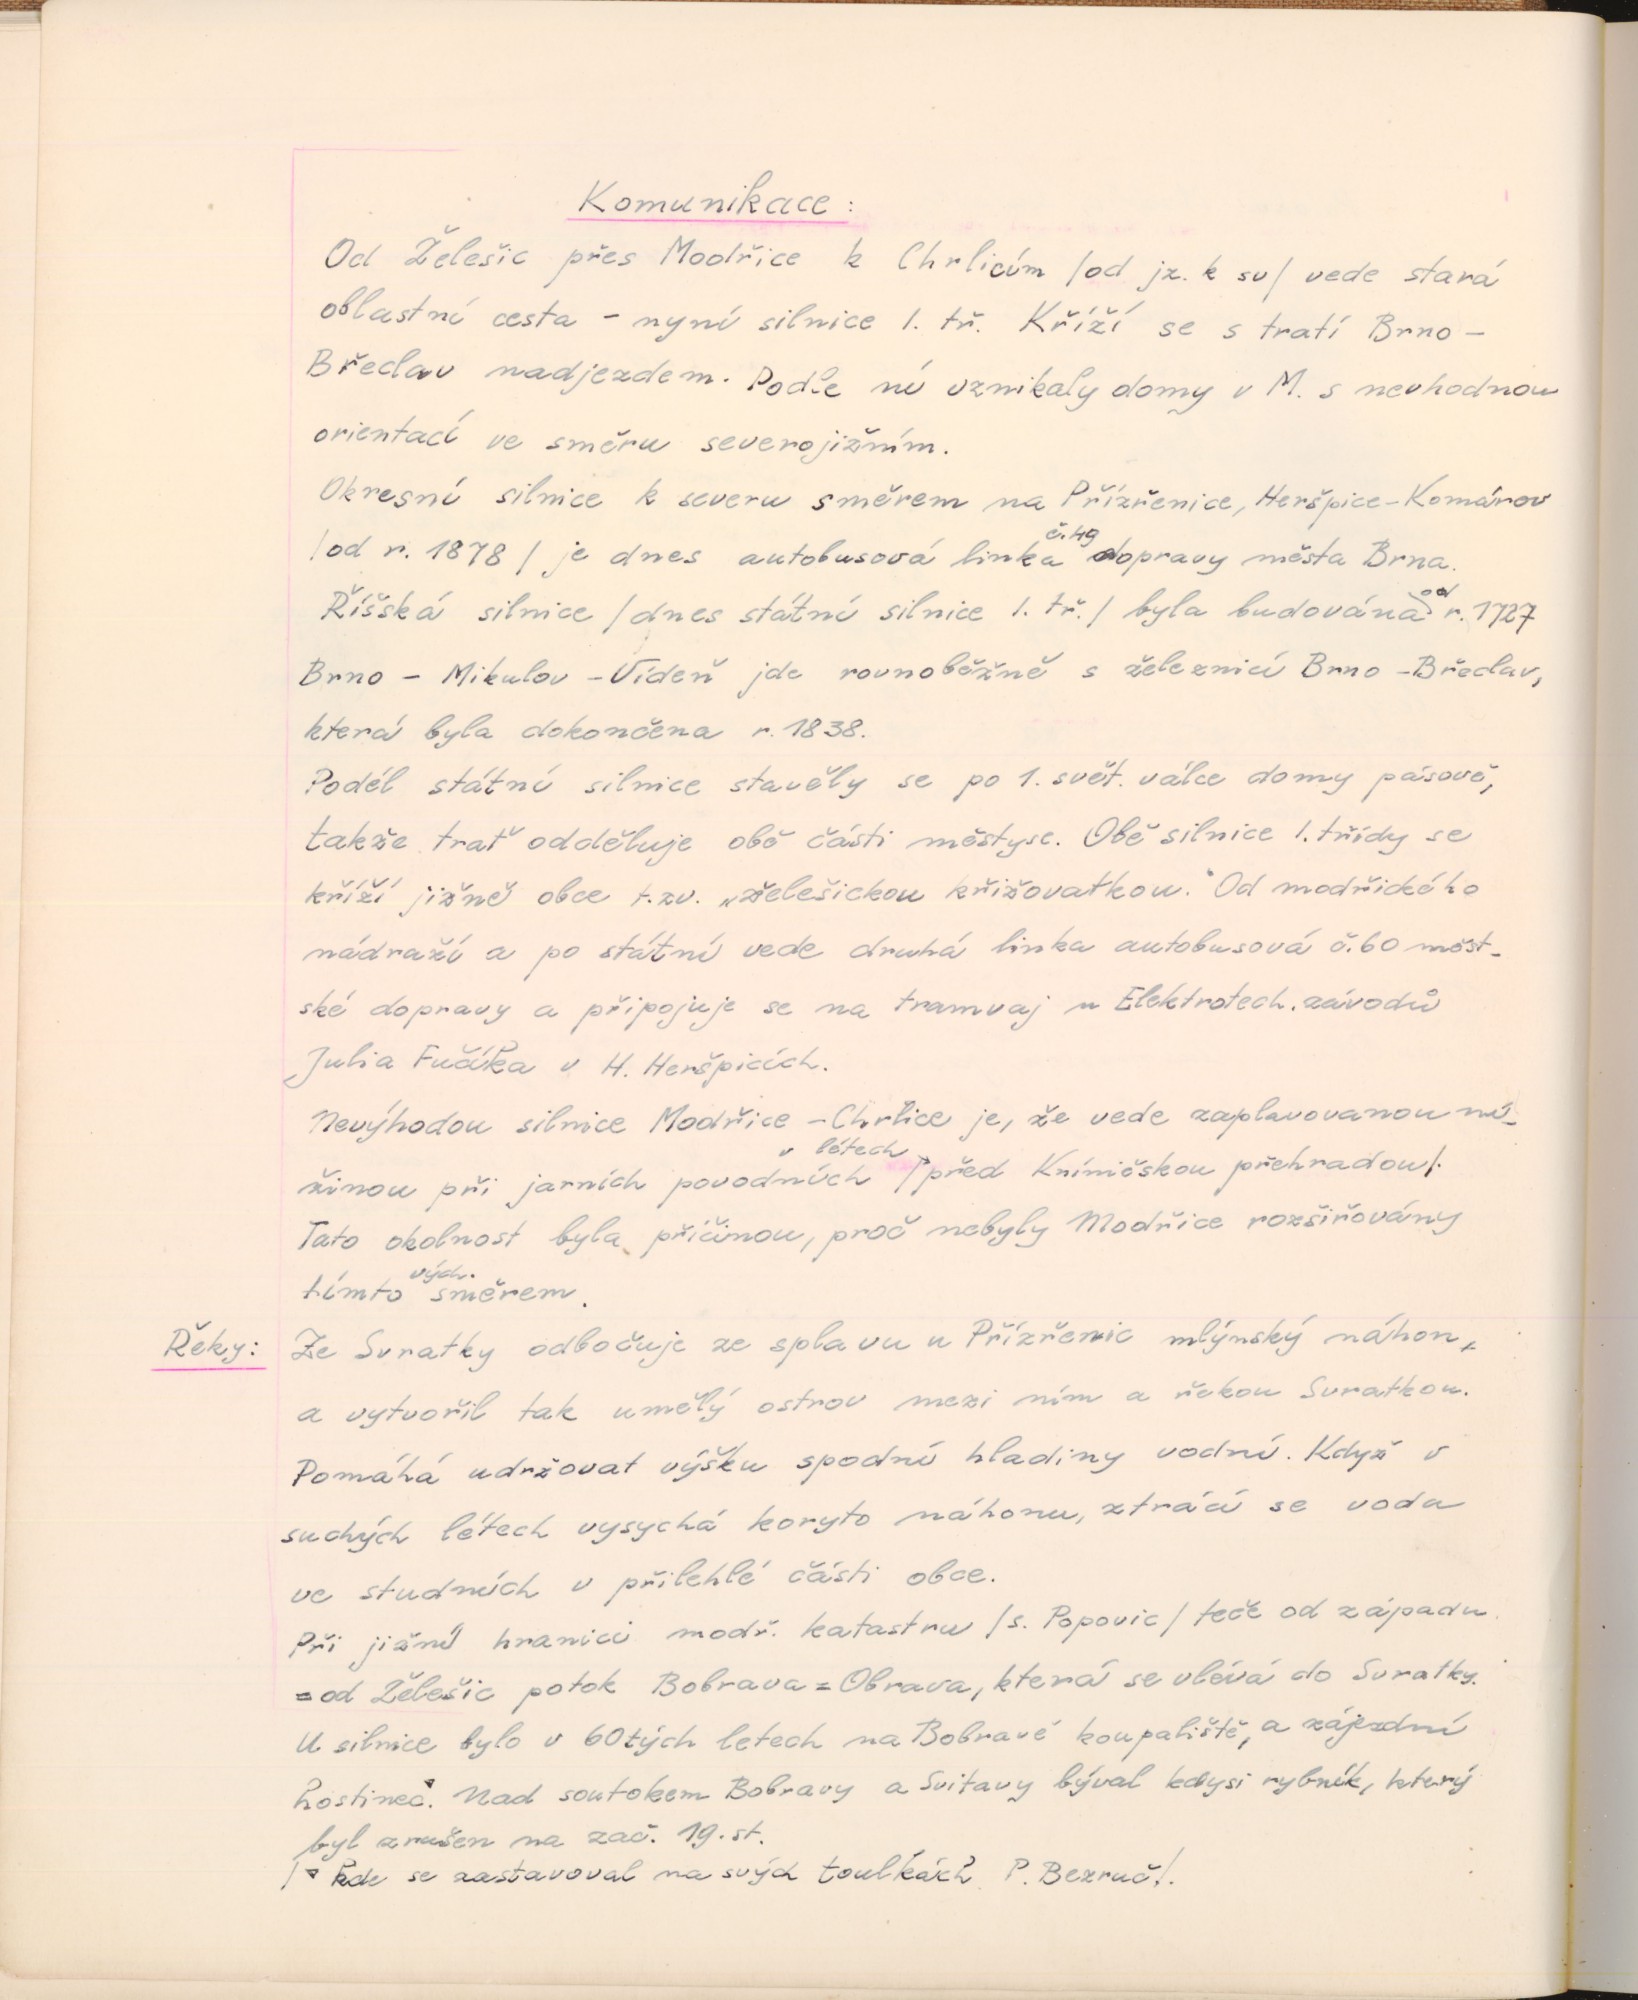 Komunikace:
Od Želešic přes Modřice k Chrlicům /od jz. k sv/ vede stará
oblastní cesta – nyní silnice I. tř. Kříží se s tratí Brno –
Břeclav nadjezdem. Podle ní vznikaly domy v M. s nevhodnou
orientací ve směru severojižním.
Okresní silnice k severu směrem na Přízřenice, Heršpice – Komárov
/od r. 1878/ je dnes autobusová linka č.49 dopravy města Brna.
Říšská silnice /dnes státní silnice I. tř./ byla budována od r. 1727
Brno – Mikulov – Vídeň jde rovnoběžně s železnicí Brno – Břeclav,
která byla dokončena r. 1838.
Podél státní silnice stavěly se po 1. svět. válce domy pásově,
takže trať odděluje obě části městyse. Obě silnice I. třídy se
kříží jižně obce t.zv. „želešickou křižovatkou." Od modřického
nádraží a po státní vede druhá linka autobusová č.60 měst-
ské dopravy a připojuje se na tramvaj u Elektrotech. závodů
Julia Fučíka v H. Heršpicích.
Nevýhodou silnice Modřice – Chrlice je, že vede zaplavovanou ní-
žinou při jarních povodních v létech /před Kníničskou přehradou/.
Tato okolnost byla příčinou, proč nebyly Modřice rozšiřovány
tímto vých. směrem.
Řeky: Ze Svratky odbočuje ze splavu u Přízřenic mlýnský náhon,
a vytvořil tak umělý ostrov mezi ním a řekou Svratkou.
Pomáhá udržovat výšku spodní hladiny vodní. Když v
suchých létech vysychá koryto náhonu, ztrácí se voda
ve studních v přilehlé části obce.
Při jižní hranici modř. katastru /s. Popovic/ teče od západu
= od Želešic potok Bobrava = Obrava, která se vlévá do Svratky.
U silnice bylo v 60tých letech na Bobravě koupaliště, a zájezdní
hostinec. Nad soutokem Bobravy a Svitavy býval kdysi rybník, který
byl zrušen na zač. 19. st.
/ kde se zastavoval na svých toulkách P. Bezruč/.